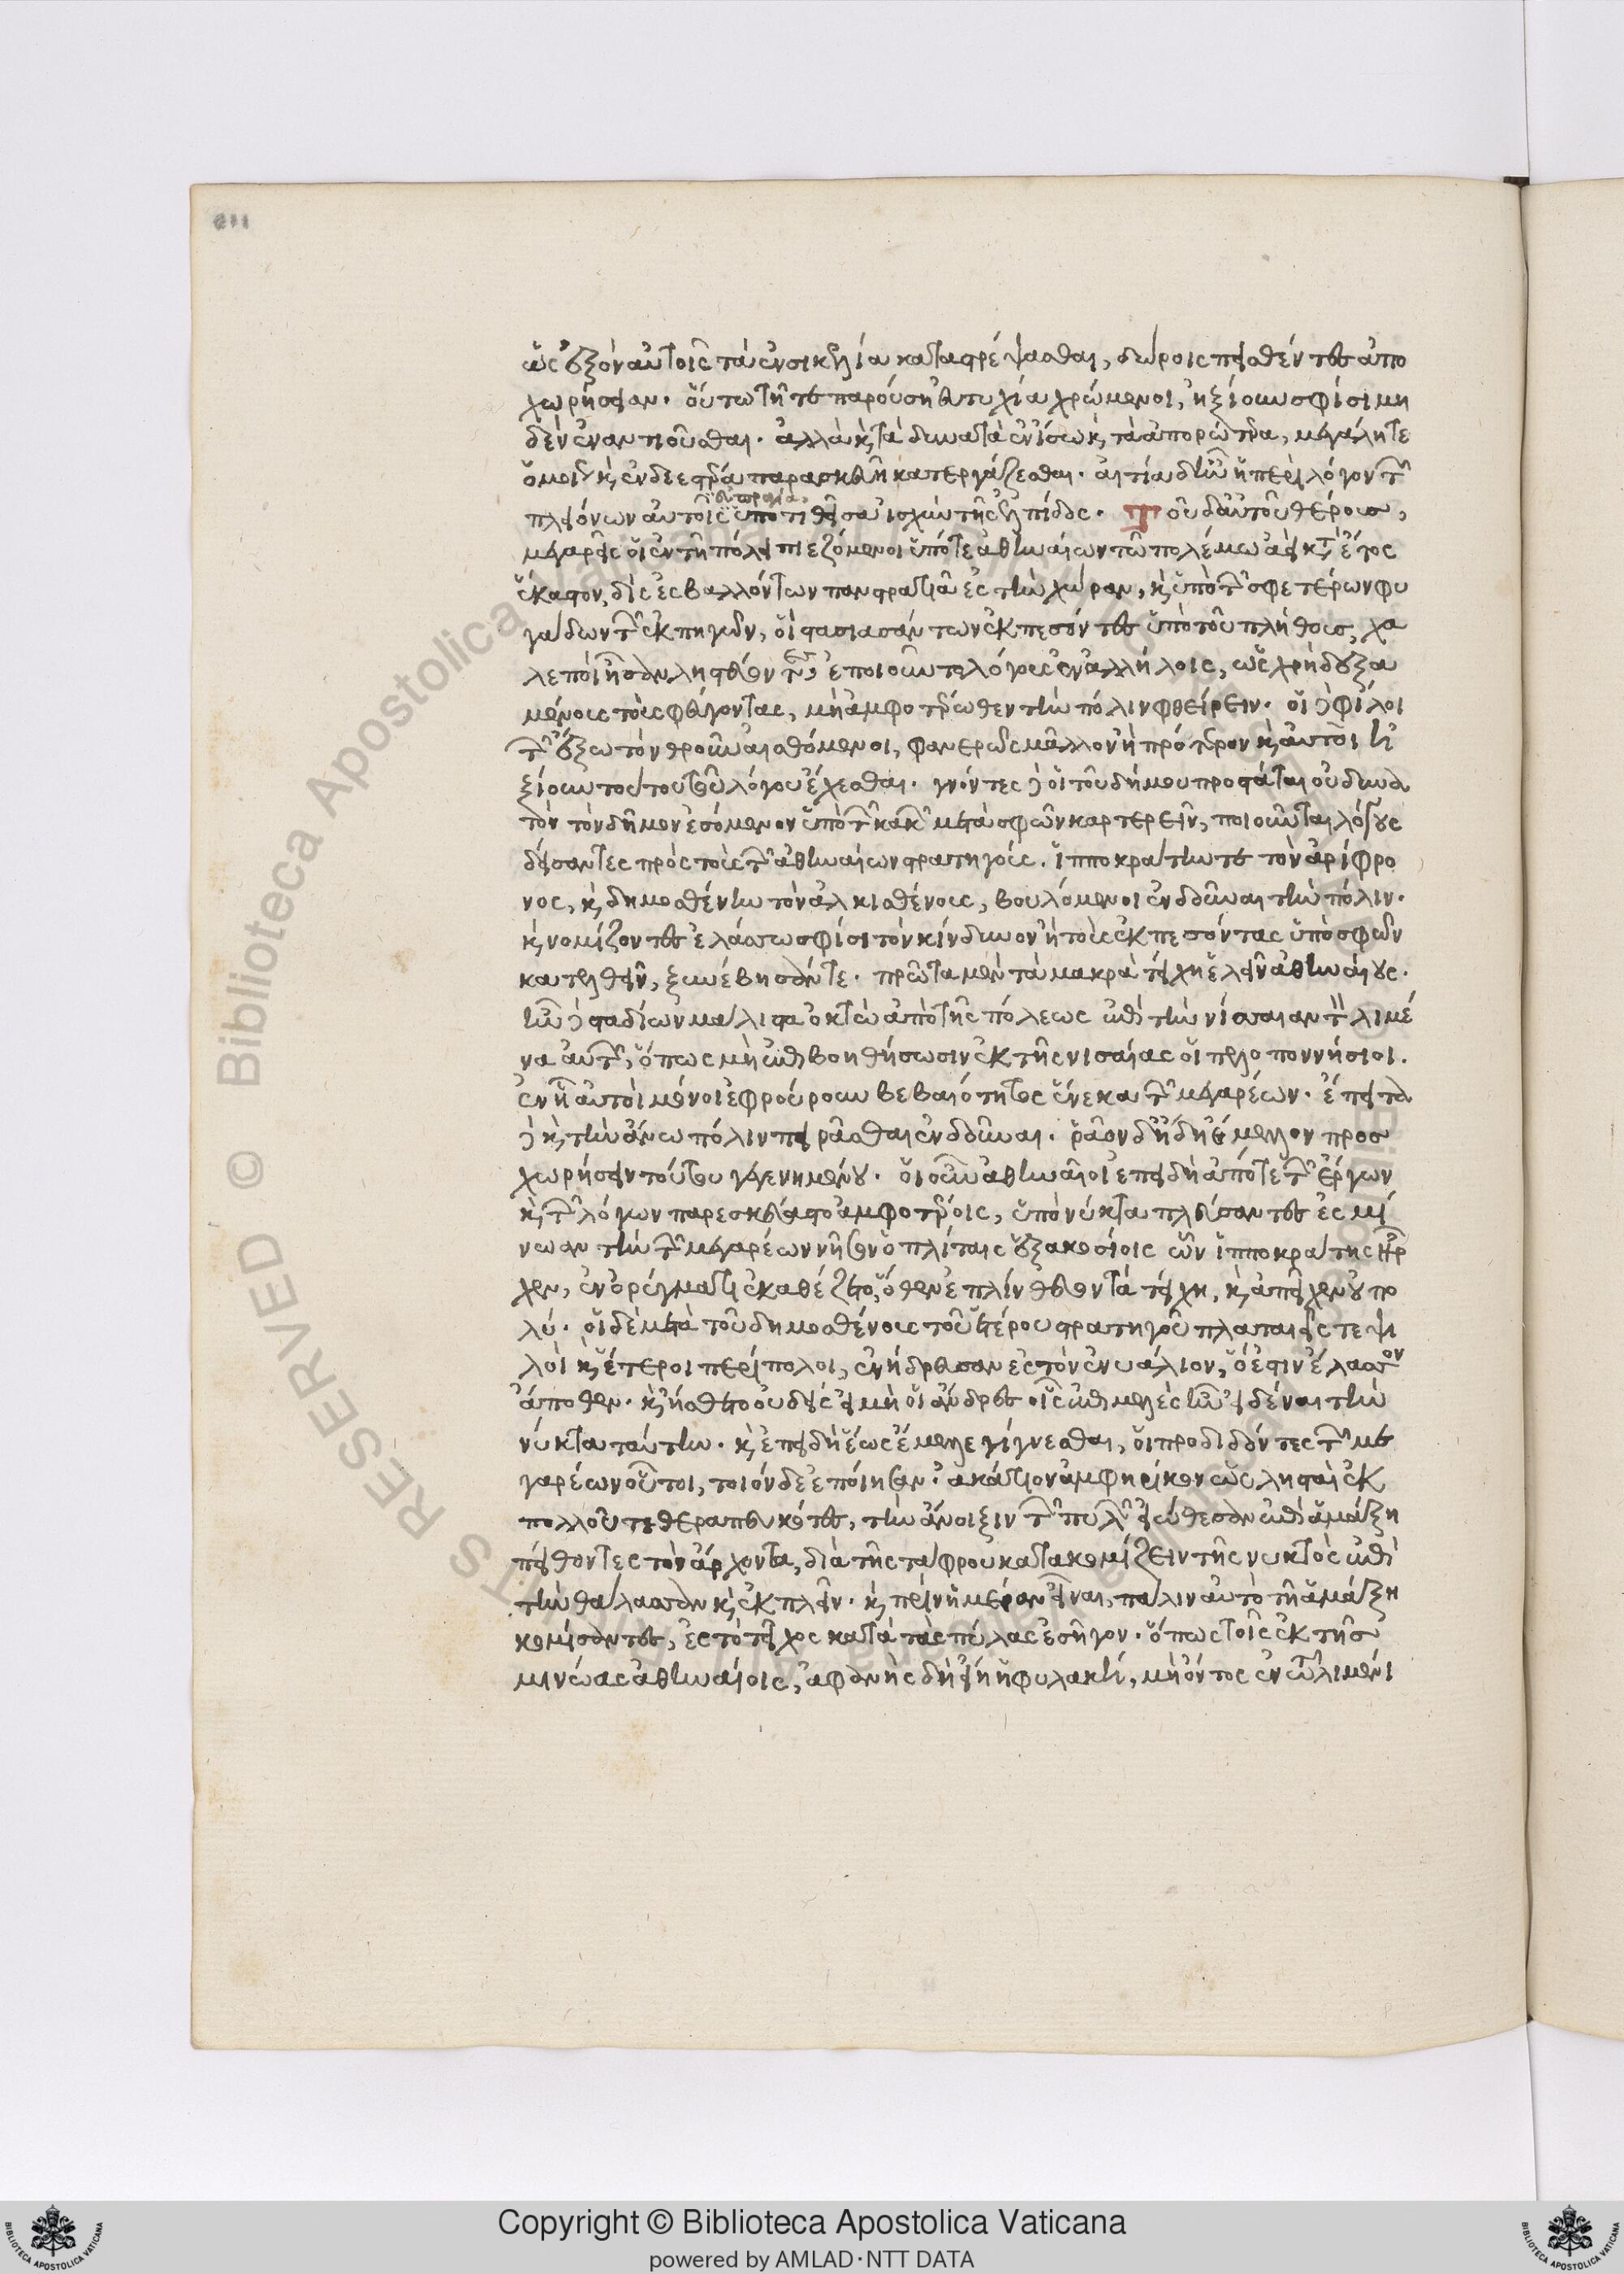 ὡς ἐξὸν αὐτοῖς τὰ ἐν σικελία καταστρέψασθαι, δώροις πεισθέντες ἀπο
χωρήσειαν. οὕτω τῆ τε παρούση εὐτυχία χρώμενοι, ἠξίουν σφίσι μη
δὲν ἐναντιοῦσθαι. ἀλλὰ καὶ τὰ δυνατὰ ἐν ἴσω καὶ τὰ ἀπορώτερα, μεγάλη τε
ὁμοίως καὶ ἐνδεεστέρα παρασκευῆ κατεργάζεσθαι. αἰτία δ' ἦν ἡ παρὰ λόγον τῶν
πλειόνων αὐτοῖς ὑποτιθεῖσα ἰσχὺν τῆς ἐλπίδος. Τοῦ δ' αὐτοῦ θέρους,
μεγαρεῖς οἱ ἐν τῆ πόλει πιεζόμενοι ὑπό τε ἀθηναίων τῶ πολέμω ἀεὶ κατὰ ἔτος
ἕκαστον, δὶς ἐσβαλλόντων πανστρατιᾶ ἐς τὴν χώραν, καὶ ὑπὸ τῶν σφετέρων φυ
γάδων τῶν ἐκ πηγῶν, οἳ στασιασάντων ἐκπεσόντες ὑπὸ τοῦ πλήθους, χα
λεποὶ ἦσαν ληστεύοντες, ἐποιοῦντο λόγους ἐν ἀλλήλοις, ὡς χρὴ δεξα
μένους τοὺς φεύγοντας, μὴ ἀμφοτέρωθεν τὴν πόλιν φθείρειν. οἱ δὲ φίλοι
τῶν ἔξω τὸν θροῦν αἰσθόμενοι, φανερῶς μᾶλλον ἢ πρότερον καὶ αὐτοὶ ἠ
ξίουν τούτου τοῦ λόγου ἔχεσθαι. γνόντες δὲ οἱ τοῦ δήμου προστάται οὐ δυνα
τὸν τὸν δῆμον ἐσόμενον ὑπὸ τῶν κακῶν μετὰ σφῶν καρτερεῖν, ποιοῦνται λόγους
δείσαντες πρὸς τοὺς τῶν ἀθηναίων στρατηγούς. ἱπποκράτην τε τὸν ἀρίφρο
νος, καὶ δημοσθένην τὸν ἀλκισθένους, βουλόμενοι ἐνδοῦναι τὴν πόλιν.
καὶ νομίζοντες ἐλάσσω σφίσι τὸν κίνδυνον ἢ τοὺς ἐκπεσόντας ὑπὸ σφῶν
κατελθεῖν, ξυνέβησάν τε. πρῶτα μὲν τὰ μακρὰ τείχη ἑλεῖν ἀθηναίους.
ἦν δὲ σταδίων μάλιστα ὀκτὼ ἀπὸ τῆς πόλεως ἐπὶ τὴν νίσαιαν τὸν λιμέ
να αὐτῶν, ὅπως μὴ ἐπιβοηθήσωσιν ἐκ τῆς νισαίας οἱ πελοποννήσιοι.
ἐν ἧ αὐτοὶ μόνοι ἐφρούρουν βεβαιότητος ἕνεκα τῶν μεγαρέων. ἔπειτα
δὲ καὶ τὴν ἄνω πόλιν πειρᾶσθαι ἐνδοῦναι. ῥᾶον δ' ἤδη ἔμελλον προσ
χωρήσειν τούτου γεγενημένου. οἱ οὖν ἀθηναῖοι ἐπειδὴ ἀπό τε τῶν ἔργων
καὶ τῶν λόγων παρεσκεύαστο ἀμφοτέροις, ὑπὸ νύκτα πλεύσαντες ἐς μί
νωαν τὴν τῶν μεγαρέων νῆσον ὁπλίταις ἑξακοσίοις ὧν ἱπποκράτης ἦρ
χεν, ἐν ὀρύγματι ἐκαθέζετο, ὅθεν ἐπλίνθευον τὰ τείχη, καὶ ἀπεῖχεν οὐ πο
λύ. οἱ δὲ μετὰ τοῦ δημοσθένους τοῦ ἑτέρου στρατηγοῦ πλαταιεῖς τε ψι
λοὶ καὶ ἕτεροι περίπολοι, ἐνήδρευσαν ἐς τὸν ἐνυάλιον, ὅ ἐστιν ἔλασσον
ἄποθεν. καὶ ἤσθετο οὐδεὶς εἰ μὴ οἱ ἄνδρες οἷς ἐπιμελὲς ἦν εἰδέναι τὴν
νύκτα ταύτην. καὶ ἐπειδὴ ἕως ἔμελλε γίγνεσθαι, οἱ προδιδόντες τῶν με
γαρέων οὗτοι, τοιόνδε ἐποίησαν. ἀκάτιον ἀμφηρικὸν ὡς λησταὶ ἐκ
πολλοῦ τεθεραπευκότες, τὴν ἄνοιξιν τῶν πυλῶν εἰώθεσαν ἐπὶ ἁμάξη
πείθοντες τὸν ἄρχοντα, διὰ τῆς τάφρου κατακομίζειν τῆς νυκτὸς ἐπὶ
τὴν θάλασσαν καὶ ἐκπλεῖν. καὶ πρὶν ἡμέραν εἶναι, πάλιν αὐτὸ τῆ ἁμάξη
κομίσαντες, ἐς τὸ τεῖχος κατὰ τὰς πύλας ἐσῆγον. ὅπως τοῖς ἐκ τῆς
μινώας ἀθηναίοις, ἀφανὴς δὴ εἴη ἡ φυλακή, μὴ ὄντος ἐν τῶ λιμένι
Copyright © Biblioteca Apostolica Vaticana
powered by AMLAD·NTT DATA